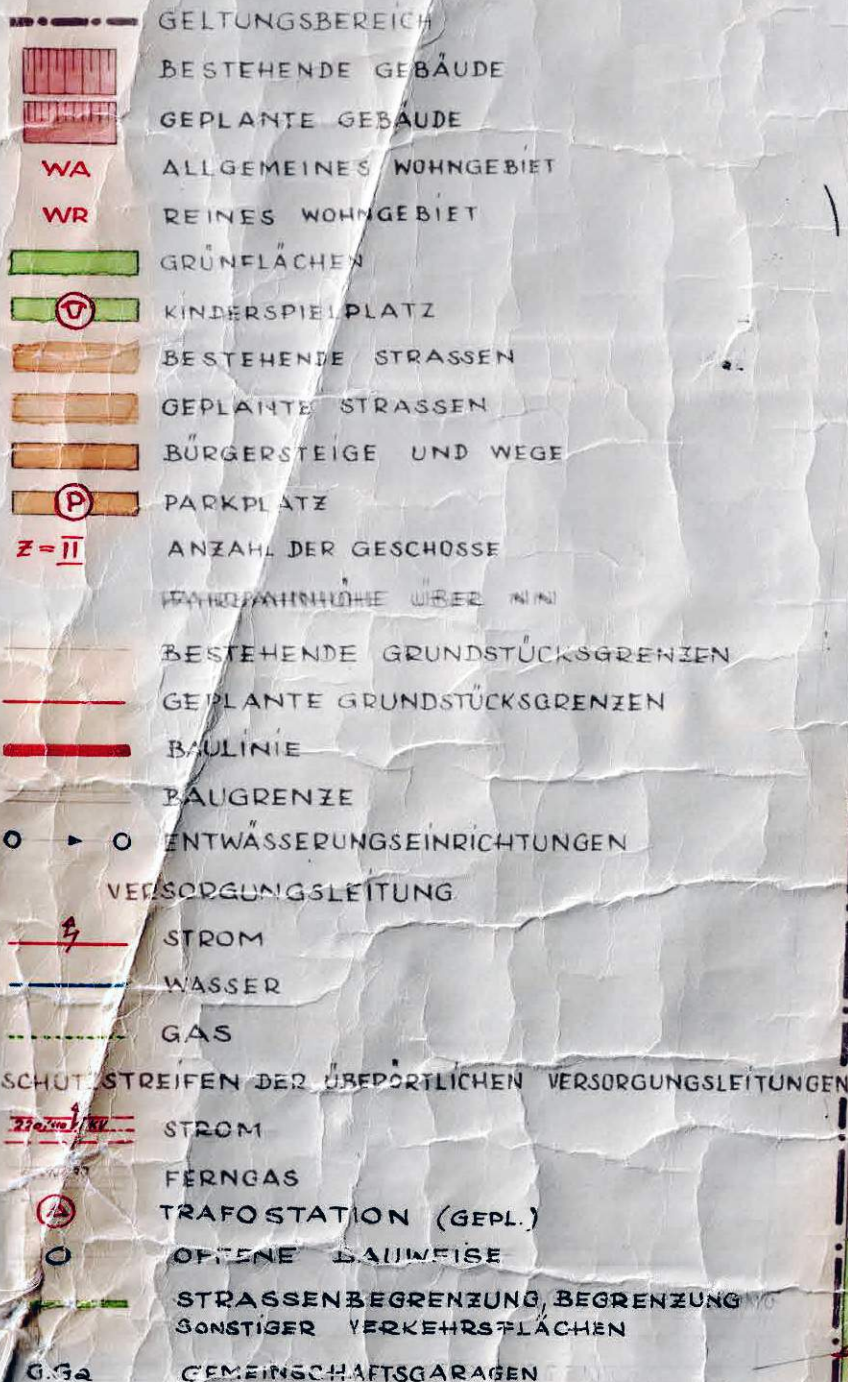 GELTUNGSBEREICH
BESTEHENDE GEBÄUDE
GEPLANTE GEBÄUDE
WA ALLGEMEINES WOHNGEBIET
WR REINES WOHNGEBIET
GRÜNFLÄCHEN
KINDERSPIELPLATZ
BESTEHENDE STRASSEN
GEPLANTE STRASSEN
BÜRGERSTEIGE UND WEGE
P PARKPLATZ
Z = II ANZAHL DER GESCHOSSE
FAHRBAHNHÖHE ÜBER NN
BESTEHENDE GRUNDSTÜCKSGRENZEN
GEPLANTE GRUNDSTÜCKSGRENZEN
BAULINIE
BAUGRENZE
ENTWÄSSERUNGSEINRICHTUNGEN
VERSORGUNGSLEITUNG
STROM
WASSER
GAS
SCHUTZSTREIFEN DER ÜBERÖRTLICHEN VERSORGUNGSLEITUNGEN
220/110 KV STROM
FERNGAS
TRAFOSTATION (GEPL.)
O OFFENE BAUWEISE
STRASSENBEGRENZUNG, BEGRENZUNG
SONSTIGER VERKEHRSFLÄCHEN
G.Ga GEMEINSCHAFTSGARAGEN